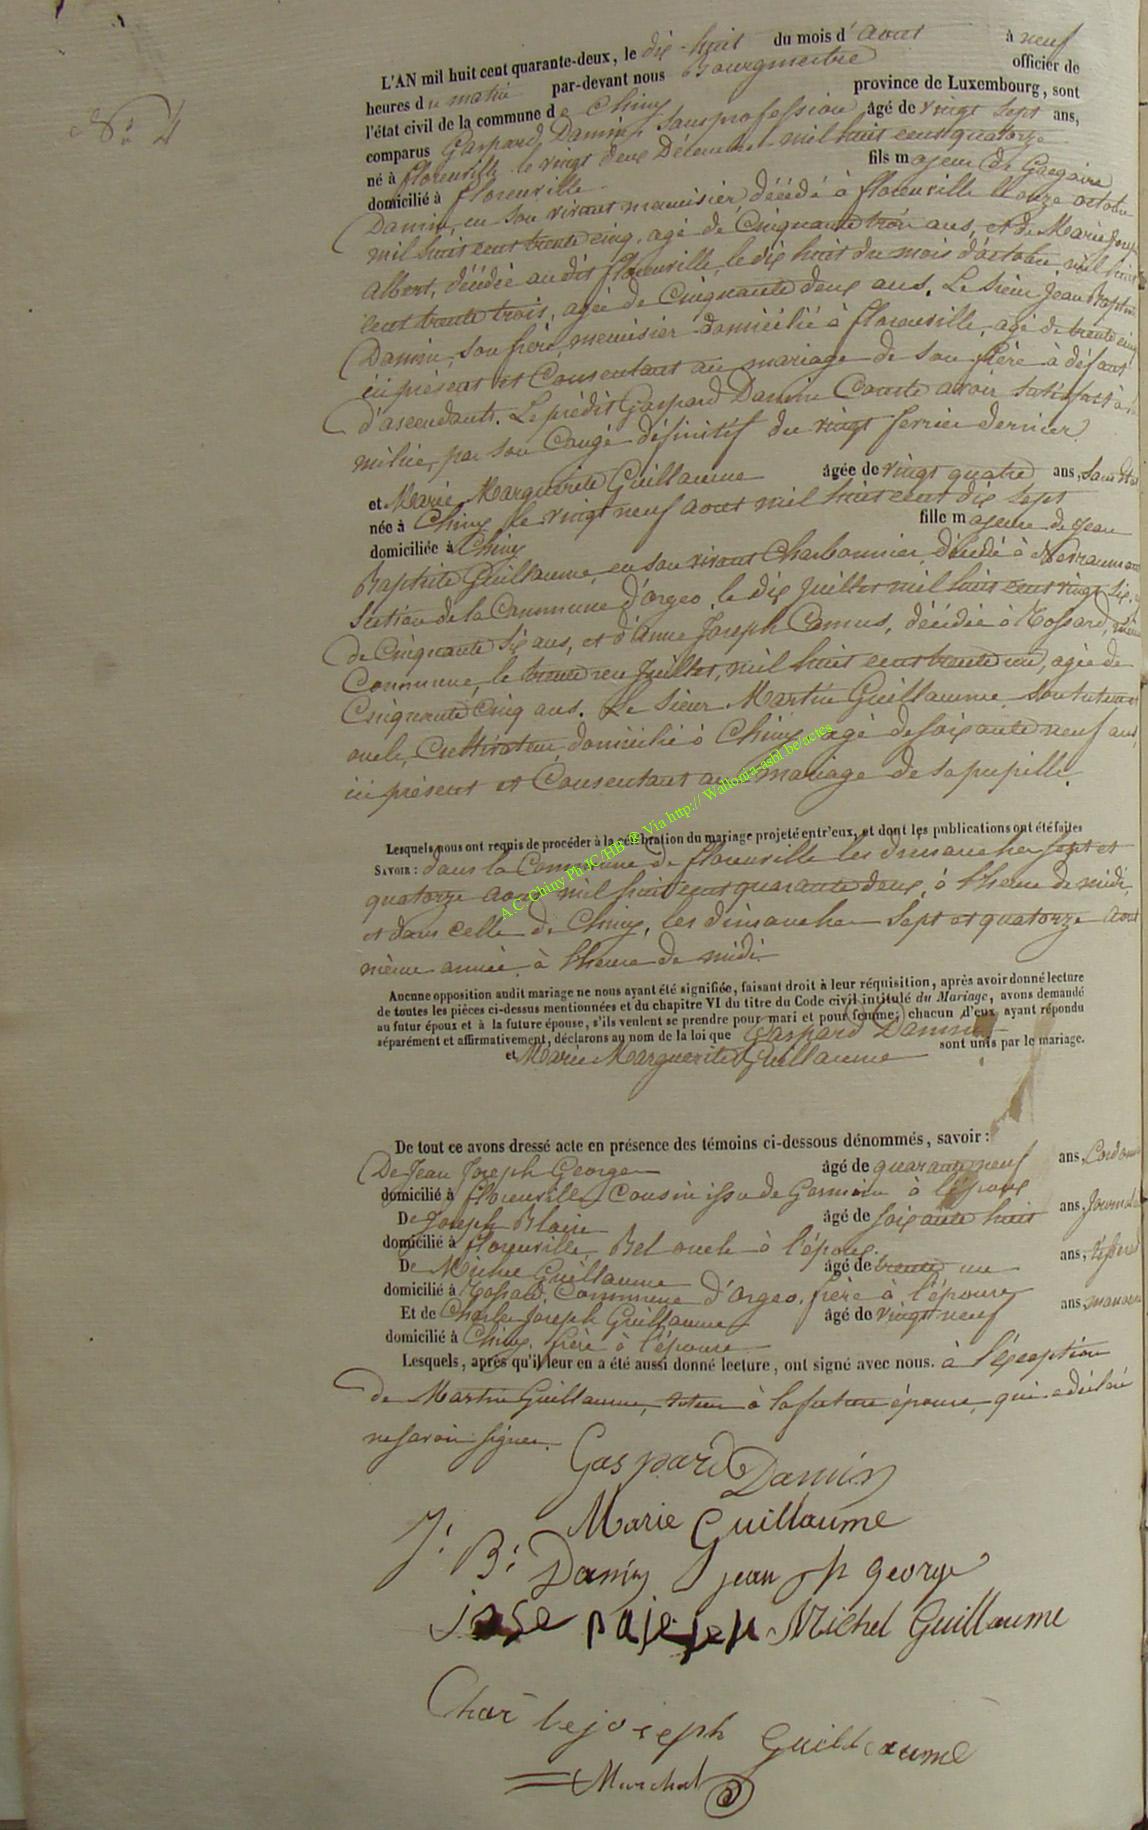 N° 4
L'AN mil huit cent quarante-deux, le dix-huit du mois d'aout à neuf
heures du matin par-devant nous Bourgmestre officier de
l'état civil de la commune de Chiny province de Luxembourg, sont
comparus Gaspard Damin, sans profession âgé de vingt sept ans,
né à florenville le vingt deux Décembre mil huit cent quatorze
domicilié à florenville fils majeur de Grégoire
Damin, en son vivant menuisier, décédé à florenville le onze octobre
mil huit cent trente cinq, agé de Cinquante trois ans, et de Marie
Albert, décédée audit florenville, le dix huit du mois d'octobre mil huit
cent trente trois, agée de Cinquante deux ans. Le Sieur Jean Baptiste
Damin, son frère, menuisier domicilié à florenville, agé de trente cinq
ici présent et Consentant au mariage de son frère à défaut
d'ascendants. Le prédit Gaspard Damin Constate avoir satisfait à la
milice, par son Congé définitif du vingt fevrier dernier
et Marie Marguerite Guillaume âgée de vingt quatre ans, sans état
née à Chiny le vingt neuf aout mil huit cent dix sept
domiciliée à Chiny fille majeure de Jean
Baptiste Guillaume, en son vivant Charbonnier, décédé à
Section de la Commune d'orgeo, le dix Juillet mil huit cent vingt six,
de Cinquante six ans, et d'Anne Joseph Camus, décédée à Rossard, même
Commune, le trente un Juillet, mil huit cent trente un, agée de
Cinquante Cinq ans. Le Sieur Martin Guillaume son tuteur et
oncle, Cultivateur, domicilié à Chiny agé de soixante neuf ans
ici présent et Consentant au mariage de sa pupille.
Lesquels nous ont requis de procéder à la célébration du mariage projeté entr'eux, et dont les publications ont été faites
SAVOIR : dans la Commune de florenville les dimanches sept et
quatorze aout mil huit cent quarante deux, à l'heure de midi,
et dans celle de Chiny, les dimanches sept et quatorze aout
même année, à l'heure de midi.
Aucune opposition audit mariage ne nous ayant été signifiée, faisant droit à leur réquisition, après avoir donné lecture
de toutes les pièces ci-dessus mentionnées et du chapitre VI du titre du Code civil intitulé du Mariage, avons demandé
au futur époux et à la future épouse, s'ils veulent se prendre pour mari et pour femme; chacun d'eux ayant répondu
séparément et affirmativement, déclarons au nom de la loi que Gaspard Damin
et Marie Marguerite Guillaume sont unis par le mariage.
De tout ce avons dressé acte en présence des témoins ci-dessous dénommés, savoir :
De Jean Joseph George âgé de quarante neuf ans,
domicilié à florenville Cousin issu de Germain à l'époux
De Joseph Blaise âgé de soixante huit ans,
domicilié à florenville, Bel oncle à l'époux.
De Michel Guillaume âgé de trente un ans,
domicilié à Rossard, Commune d'Orgeo, frère à l'épouse
Et de Charles Joseph Guillaume âgé de vingt neuf ans,
domicilié à Chiny, frère à l'épouse
Lesquels, après qu'il leur en a été aussi donné lecture, ont signé avec nous. à l'éxception
de Martin Guillaume, tuteur à la future épouse, qui a déclaré
ne savoir signer.
Gaspard Damin
Marie Guillaume
J: B: Damin jean jph george
Michel Guillaume
Charlejoseph Guillaume
Marchal
A.C. Chiny Ph JC/HB ® Via http:// Wallonia-asbl.be/actes